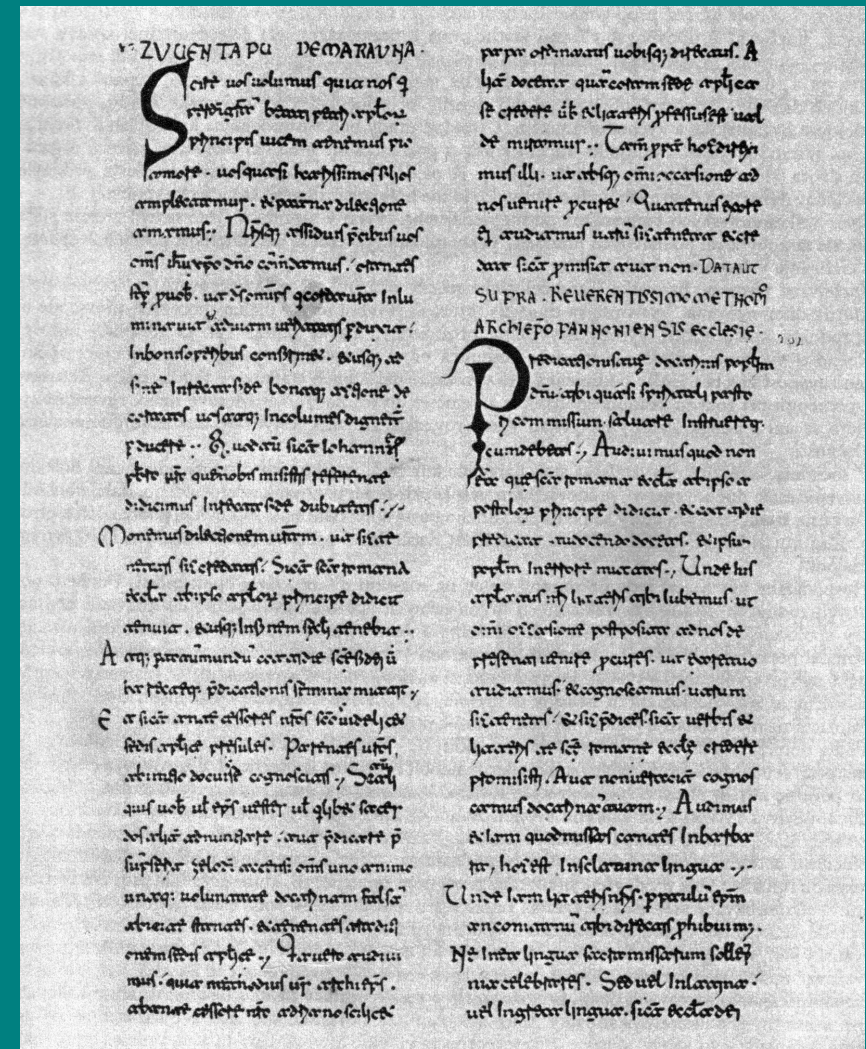 ZUUENTAPU DEMARAUNA.
Scire uos uolumus quia nos q
predigñr beati petri aplor
principis uicem tenemus pio
amore. uos quasi karissimos filios
amplectamur. & paterna dilectione
amamus. Nrisq; assiduis p̄cibus uos
om̄s ih̄u xp̄o dn̄o com̄damus. orantes
sēp p uob. ut ds om̄ps q corda urā Inlu
minauit & aduiam ueritatis pduxit.
Inbonis operibus confirmet. & usq; ad
fine Intecta fide bonaq; actione de
coratos uos atq; Incolumes dignet
pducere. Et uod au sicut Iohanne
pb̄ro ur̄o que nobis misistis referente
didicimus Interta fide dubitetis.
Monemus dilectionem uram. ut sic te
neatis sic credatis. Sicut sc̄a romana
eccl̄a ab ipso aplor principe didicit
tenuit. & usq; In finem scl̄i tenebit.
Atq; p totum mundu cotidie sc̄e fidei u
ba recteq; p̄dicationis semina mittit,
Et sicut antecessores nr̄os sc̄o uidelicet
sedis aplice presules. Parentes ur̄os,
ab initio docuisse cognoscitis., Si ali
quis uob ul ep̄s uester ul qlibet sacer
dos alit adnuntiare. aut p̄dicare p̄
sūpserit zelo d̄i accensi om̄s uno animo
unaq; uoluntate doctrinam falsā
abicite stantes. & tenentes traditi
onem sedis aplice., Q ia uero audiui
mus. quia methodius ur̄ archiep̄s.
ab antecessore nr̄o adriano scilicet
papa ordinatus uobisq; directus. A
lit doceat qua coram sede aplica
se credere ūb & litteris professus est ual
de miramur.. Tam ppt hoc direxi
mus illi. ut absq; om̄i occasione ad
nos uenire pcuret. Quatenus ex ore
ei audiamus utrū sic teneat & cre
dat sicut pmisit aut non. DATA UT
SUPRA. REUERENTISSIMO METHOD̄
ARCHIEP̄O PANNONIENSIS ecclesie.
Predicationis tue doctrinis poplm
Dn̄i tibi quasi spiritali pasto
ri commissum. saluare Instruereq.
cum debeas., Audiuimus quod non
ea que sc̄a romana eccl̄a ab ipso a
postolor principe didicit. & cotidie
predicat. tu docendo doceas. & ipsum
poplm In errore mittas., Unde his
aplatus nr̄i litteris tibi iubemus ut
om̄i occasione postposita ad nos de
presenti uenire pcures. ut ex ore tuo
audiamus. & cognoscamus. utrum
sic teneas. & sic p̄dices. sicut uerbis &
litteris te sc̄e romane eccl̄e credere
promisisti. Aut non ueraciter cognos
camus doctrinā tuam., Audimus
& iam quod missas cantes In barba
ra, hoc est In sclauina lingua.
Unde Iam litteris nr̄is. p paulū ep̄m
anconitanū tibi directis phibuim;.
Ne In ea lingua sacra missarum solle͂p
nia celebrares. Sed uel In latina.
uel In greca lingua. sicut eccl̄a dei